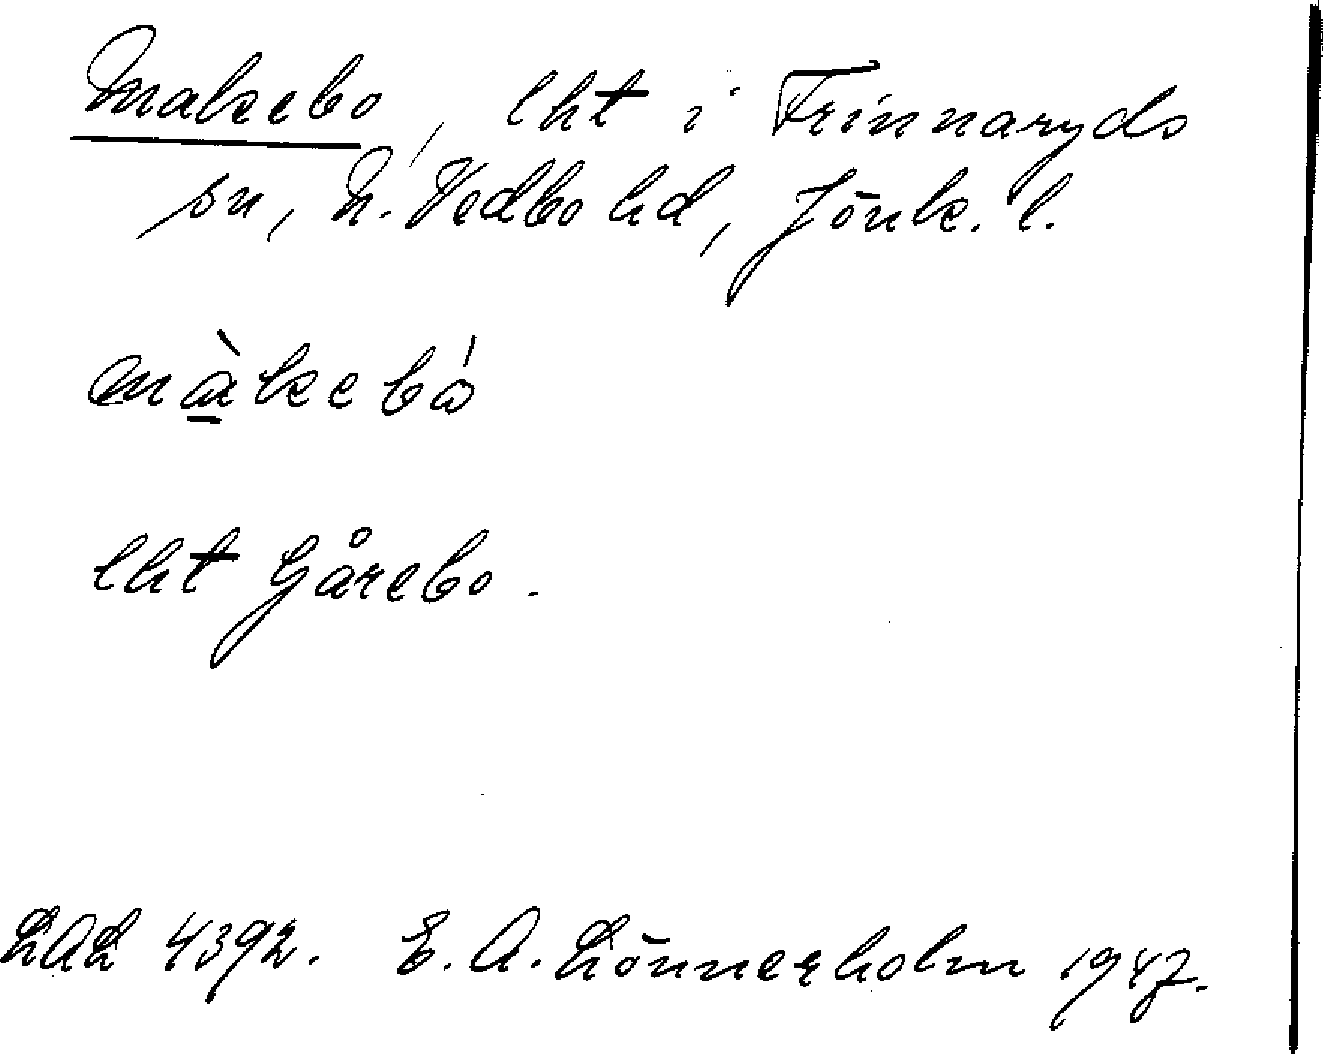 Makebo, lht i Frinnaryds
sn, N. Vedbo hd, Jönk. l.
màkebó
lht Gårebo.
LAL 4392. E. A. Lönnerholm 1947.